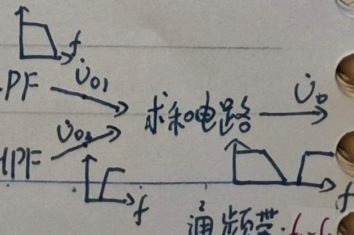 f
PF U̇o1
求和电路 U̇o
HPF U̇o2
f
f
通频带: